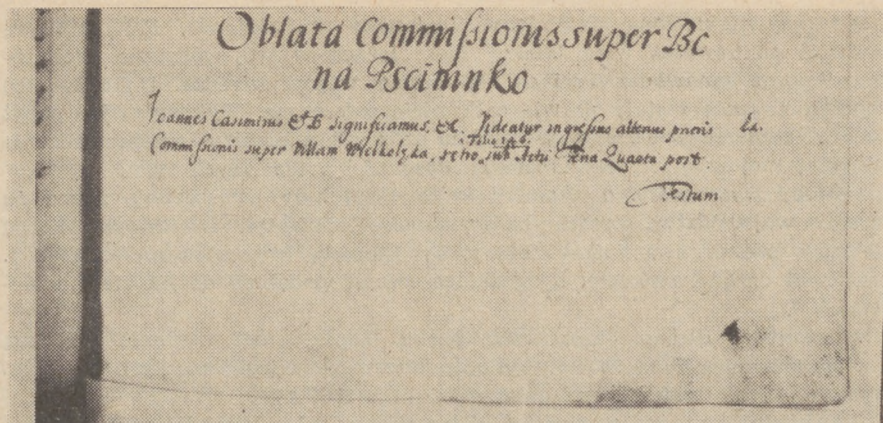 Oblata Commissionis super Bo
na Pscimnko
Joannes Casimirus &c significamus, &c. Videatur ingressus alterius prioris Ex.
Commissionis super Villam Wielkolzka, retro sub Actu Feria Quarta post
Festum